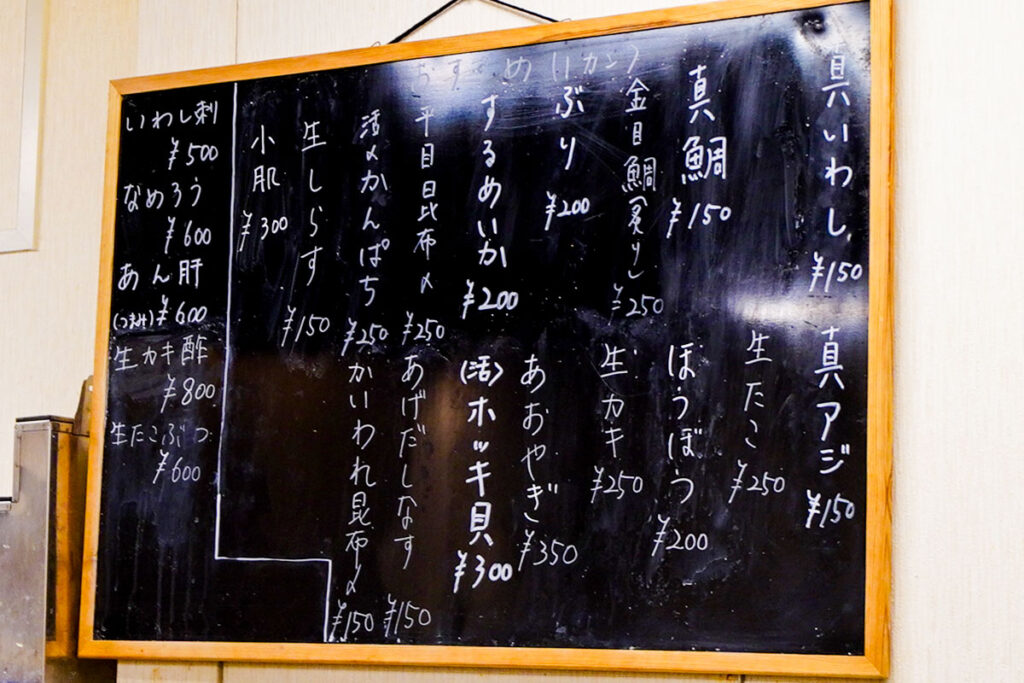 真いわし ¥150
真鯛 ¥150
金目鯛(炙り) ¥250
ぶり ¥200
するめいか ¥200
平目昆布〆 ¥250
活〆かんぱち ¥250
生しらす ¥150
小肌 ¥300
真アジ ¥150
生たこ ¥250
ほうぼう ¥200
生ガキ ¥250
あおやぎ ¥350
(活)ホッキ貝 ¥300
あげだしなす ¥150
かいわれ昆布〆 ¥150
いわし刺
¥500
なめろう
¥600
あん肝
(つまみ)¥600
生カキ酢
¥800
生たこぶつ
¥600